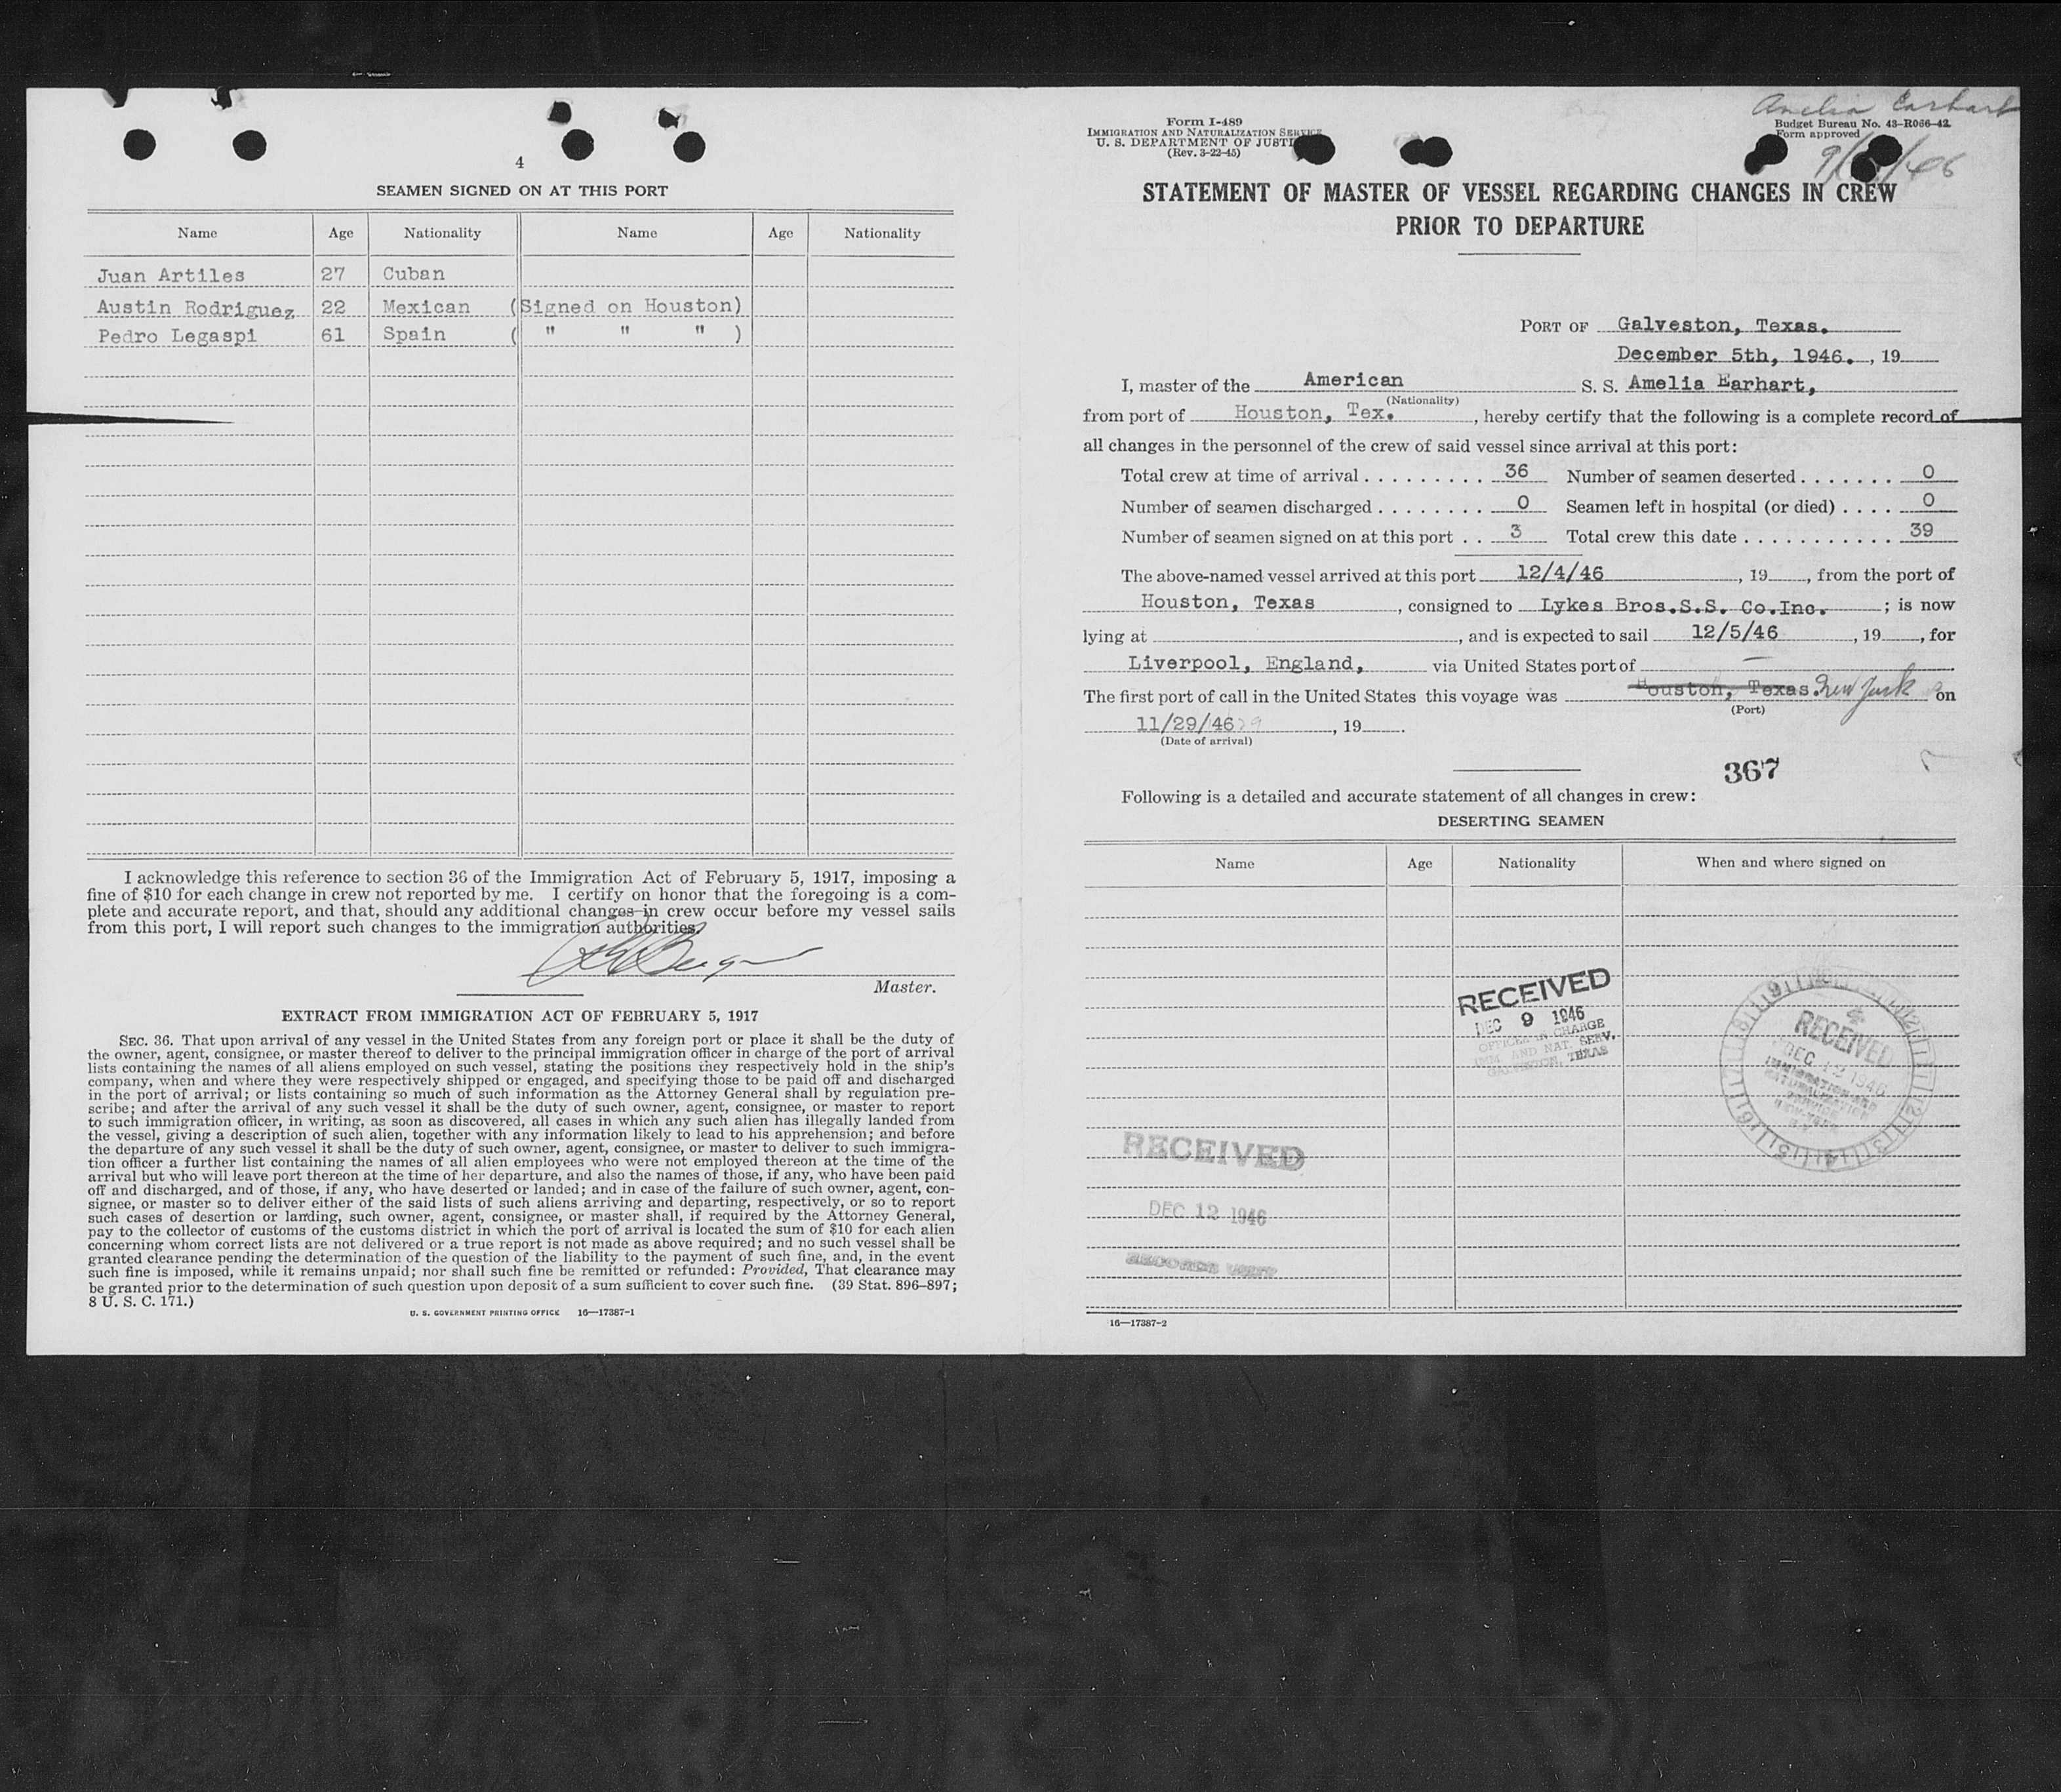 4
SEAMEN SIGNED ON AT THIS PORT
Name Age Nationality Name Age Nationality
Juan Artiles 27 Cuban
Austin Rodriguez 22 Mexican (Signed on Houston)
Pedro Legaspi 61 Spain ( " " " )
I acknowledge this reference to section 36 of the Immigration Act of February 5, 1917, imposing a
fine of $10 for each change in crew not reported by me. I certify on honor that the foregoing is a com-
plete and accurate report, and that, should any additional changes in crew occur before my vessel sails
from this port, I will report such changes to the immigration authorities.
Master.
EXTRACT FROM IMMIGRATION ACT OF FEBRUARY 5, 1917
SEC. 36. That upon arrival of any vessel in the United States from any foreign port or place it shall be the duty of
the owner, agent, consignee, or master thereof to deliver to the principal immigration officer in charge of the port of arrival
lists containing the names of all aliens employed on such vessel, stating the positions they respectively hold in the ship's
company, when and where they were respectively shipped or engaged, and specifying those to be paid off and discharged
in the port of arrival; or lists containing so much of such information as the Attorney General shall by regulation pre-
scribe; and after the arrival of any such vessel it shall be the duty of such owner, agent, consignee, or master to report
to such immigration officer, in writing, as soon as discovered, all cases in which any such alien has illegally landed from
the vessel, giving a description of such alien, together with any information likely to lead to his apprehension; and before
the departure of any such vessel it shall be the duty of such owner, agent, consignee, or master to deliver to such immigra-
tion officer a further list containing the names of all alien employees who were not employed thereon at the time of the
arrival but who will leave port thereon at the time of her departure, and also the names of those, if any, who have been paid
off and discharged, and of those, if any, who have deserted or landed; and in case of the failure of such owner, agent, con-
signee, or master so to deliver either of the said lists of such aliens arriving and departing, respectively, or so to report
such cases of desertion or landing, such owner, agent, consignee, or master shall, if required by the Attorney General,
pay to the collector of customs of the customs district in which the port of arrival is located the sum of $10 for each alien
concerning whom correct lists are not delivered or a true report is not made as above required; and no such vessel shall be
granted clearance pending the determination of the question of the liability to the payment of such fine, and, in the event
such fine is imposed, while it remains unpaid; nor shall such fine be remitted or refunded: Provided, That clearance may
be granted prior to the determination of such question upon deposit of a sum sufficient to cover such fine. (39 Stat. 896-897;
8 U. S. C. 171.)
U. S. GOVERNMENT PRINTING OFFICE 16—17387-1
Amelia Earhart
Form I-489
IMMIGRATION AND NATURALIZATION SERVICE
U. S. DEPARTMENT OF JUSTI
(Rev. 3-22-45)
Budget Bureau No. 43-R066-42
Form approved
STATEMENT OF MASTER OF VESSEL REGARDING CHANGES IN CREW
PRIOR TO DEPARTURE
PORT OF Galveston, Texas.
December 5th, 1946. , 19
I, master of the American S. S. Amelia Earhart,
(Nationality)
from port of Houston, Tex. , hereby certify that the following is a complete record of
all changes in the personnel of the crew of said vessel since arrival at this port:
Total crew at time of arrival . . . . . . . . . 36 Number of seamen deserted . . . . . . . 0
Number of seamen discharged . . . . . . . . 0 Seamen left in hospital (or died) . . . . 0
Number of seamen signed on at this port . . 3 Total crew this date . . . . . . . . . . . 39
The above-named vessel arrived at this port 12/4/46 , 19 , from the port of
Houston, Texas , consigned to Lykes Bros.S.S. Co.Inc. ; is now
lying at , and is expected to sail 12/5/46 , 19 , for
Liverpool, England, via United States port of —
The first port of call in the United States this voyage was Houston, Texas New York on
(Port)
11/29/46 , 19 .
(Date of arrival)
367
Following is a detailed and accurate statement of all changes in crew:
DESERTING SEAMEN
Name Age Nationality When and where signed on
RECEIVED
DEC 9 1946
OFFICER IN CHARGE
IMM. AND NAT. SERV.
GALVESTON, TEXAS
RECEIVED
DEC 12 1946
IMMIGRATION AND
NATURALIZATION
SERVICE
RECEIVED
DEC 12 1946
RECORDS UNIT
16—17387-2